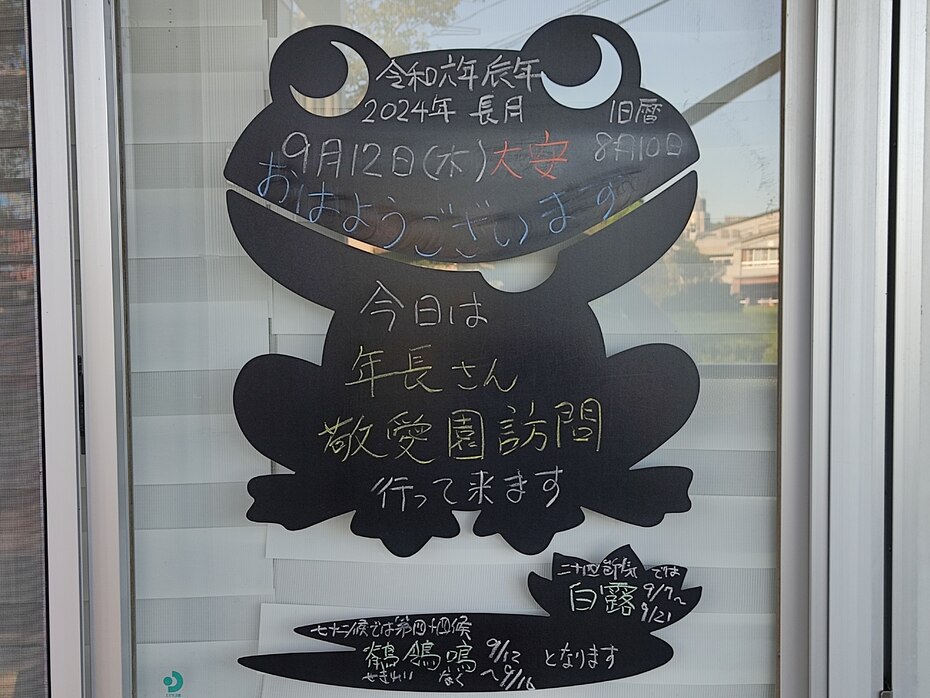 令和六年辰年
2024年 長月 旧暦
9月12日(木)大安 8月10日
おはようございます
今日は
年長さん
敬愛園訪問
行って来ます
二十四節気では
白露 9/7~
9/21
七十二候では第四十四候
鶺鴒鳴 9/12
~9/16
せきれい なく
となります